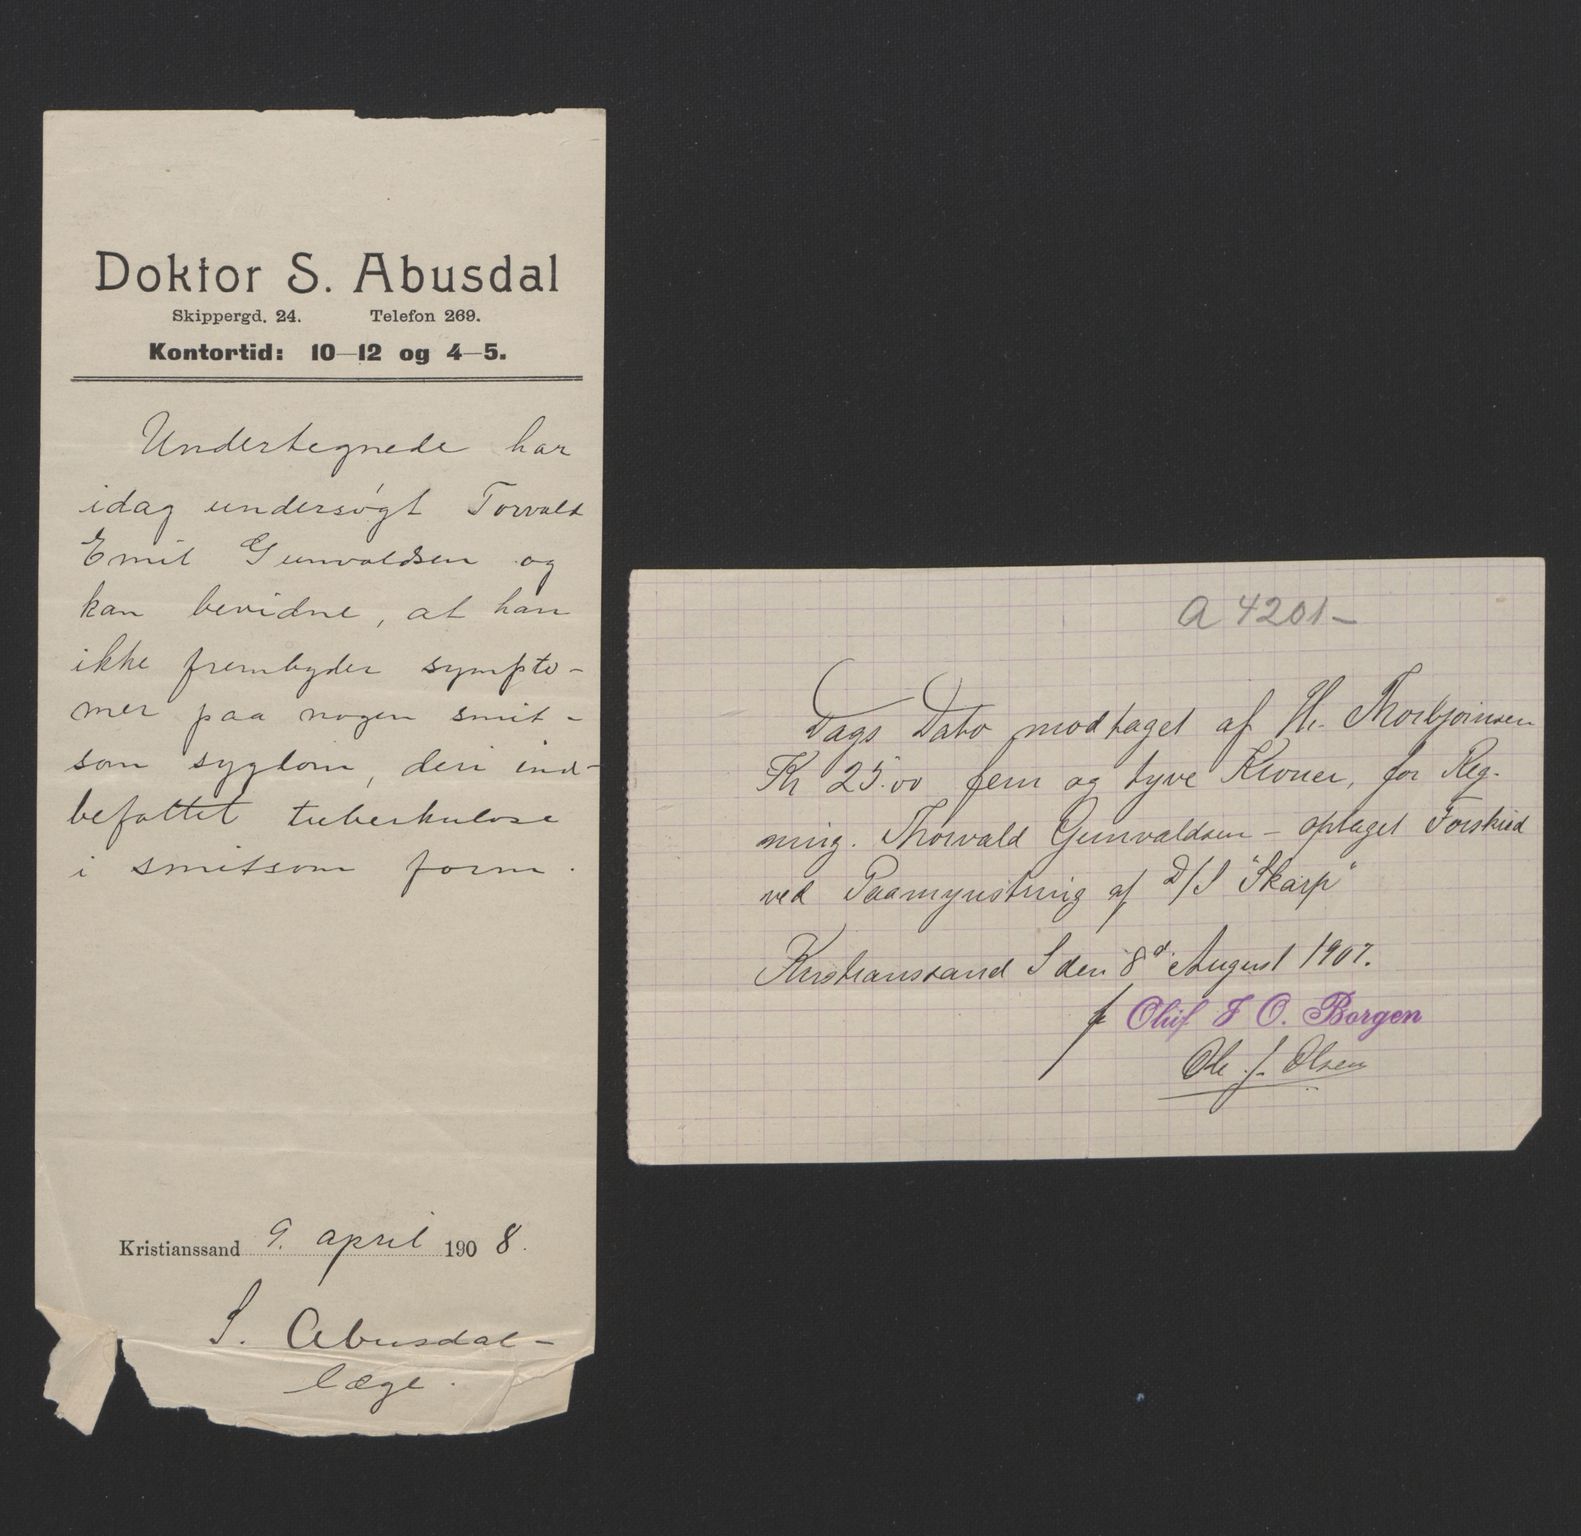 Doktor S. Abusdal
Skippergd. 24. Telefon 269.
Kontortid: 10-12 og 4-5.
Undertegnede har
idag undersøgt Torvald
Emil Gunvaldsen og
kan bevidne, at han
ikke frembyder sympto-
mer paa nogen smit-
som sygdom, deri ind-
befattet tuberkulose
i smitsom form.
Kristianssand 9. april 1908.
S. Abusdal-
læge.
A 4201-
Dags Dato modtaget af Hr. Thorbjörnsen
Kr 25.00 fem og tyve Kroner, for Reg-
ning. Thorvald Gunvaldsen - optaget Forskud
ved Paamynstring af D/S "Skarp"
Kristianssand S den 8d August 1907.
p Oluf F O. Borgen
Ole J. Olsen